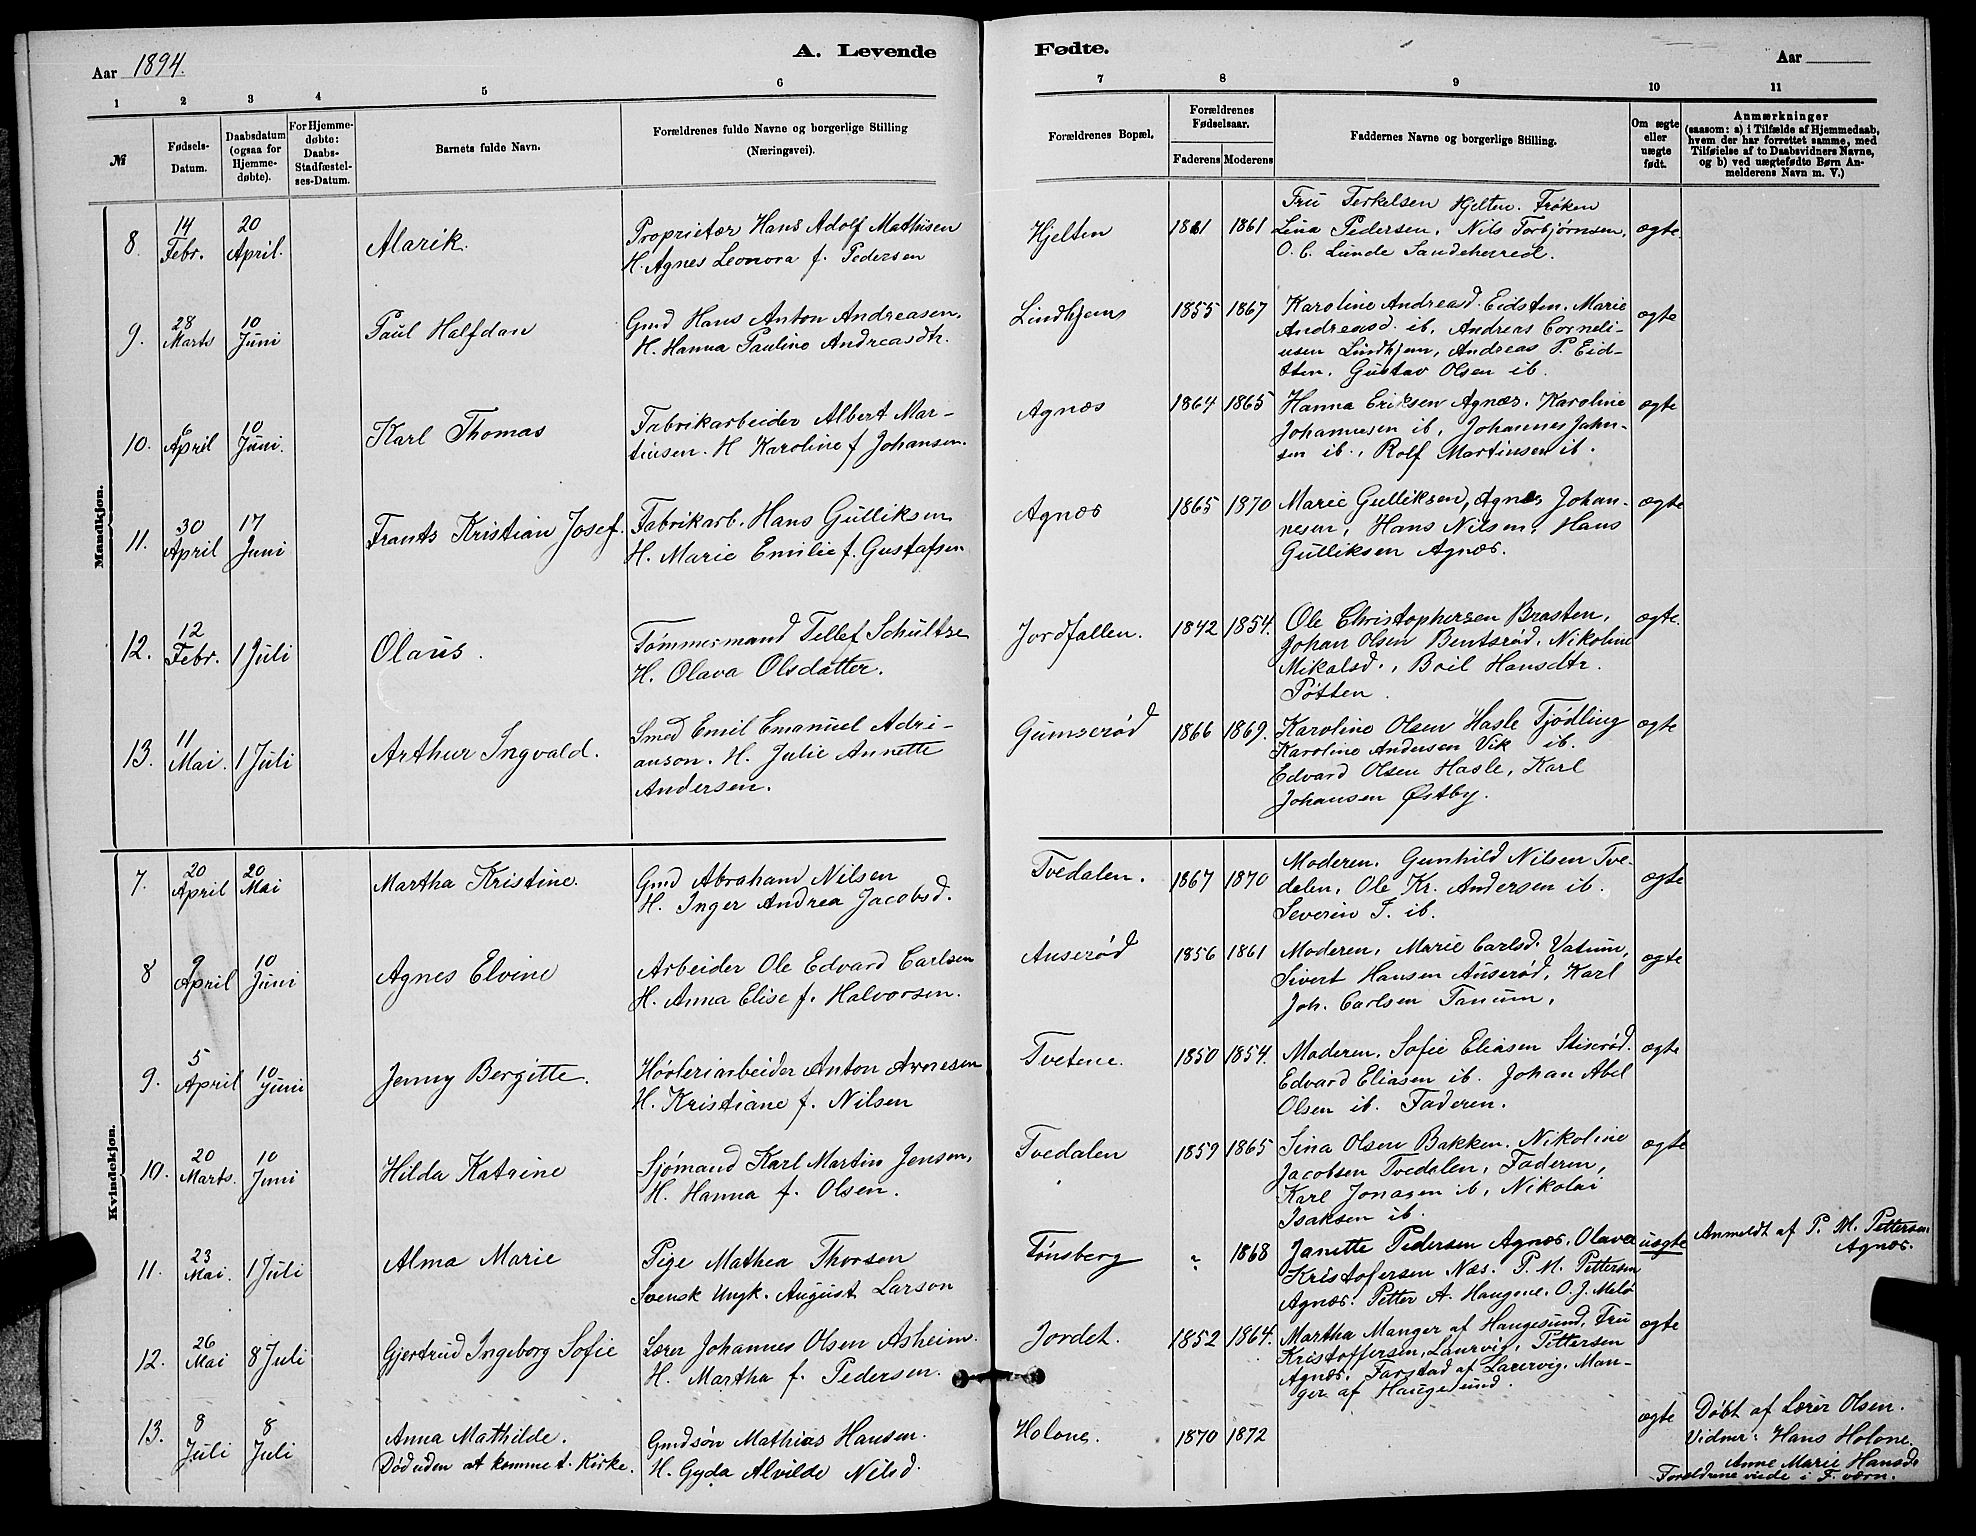 Aar 1894.
A. Levende
1 2 3 4 5 6
№
Fødsels-Datum.
Daabsdatum (ogsaa for Hjemme-døbte).
For Hjemme-døbte: Daabs-Stadfæstel-ses-Datum.
Barnets fulde Navn.
Forældrenes fulde Navne og borgerlige Stilling
(Næringsvei).
Fødte.
Aar
7 8 9 10 11
Forældrenes Bopæl.
Forældrenes Fødselsaar.
Faderens Moderens
Faddernes Navne og borgerlige Stilling.
Om ægte eller uægte født.
Anmærkninger
(saasom: a) i Tilfælde af Hjemmedaab,
hvem der har forrettet samme, med
Tilføielse af to Daabsvidners Navne,
og b) ved uægtefødte Børn An-
melderens Navn m. V.)
Mandkjøn.
8. 14 Febr. 20 April. Alarik.
Proprietær Hans Adolf Mathisen
H. Agnes Leonora f. Pedersen
Hjelten 1861 1861
Fru Terkelsen Hjelten. Frøken
Lina Pedersen. Nils Torbjørnsen,
O. C. Lunde Sandeherred.
ægte
9. 28 Marts 10 Juni Paul Halfdan
Gmd Hans Anton Andreasen,
H. Hanna Pauline Andreasdtr.
Lindhjem 1855 1867
Karoline Andreasd. Eidsten. Marie
Andreasd. ib. Andreas Corneli-
usen Lindhjem, Andreas P. Eid-
sten. Gustav Olsen ib.
ægte
10. 6 April 10 Juni. Karl Thomas
Fabrikarbeider Albert Mar-
tinsen. H Karoline f Johansen.
Agnæs 1864 1865
Hanna Eriksen Agnæs. Karoline
Johannesen ib, Johannes Jahn-
sen ib., Rolf Martinsen ib.
ægte
11. 30 April 17 Juni Frants Kristian Josef.
Fabrikarb. Hans Gulliksen
H. Marie Emilie f. Gustafsen
Agnæs 1865 1870
Marie Gulliksen, Agnæs Johan-
nesen, Hans Nilsen, Hans
Gulliksen Agnæs.
ægte
12. 12 Febr. 1 Juli Olaus.
Tømmermand Tellef Schultze
H. Olava Olsdatter.
Jordfallen. 1842 1854.
Ole Christophersen Brasten,
Johan Olsen Bentsrød. Nikoline
Mikalsd., Boil Hansdtr.
Pøtten.
ægte.
13. 11 Mai. 1 Juli Arthur Ingvald.
Smed Emil Emanuel Adri-
anson. H. Julie Annette
Andersen.
Gumserød 1866 1869.
Karoline Olsen Hasle Tjødling
Karoline Andersen Vik ib.
Edvard Olsen Hasle, Karl
Johansen Østby.
ægte
Kvindekjøn.
7. 20 April 20 Mai Martha Kristine.
Gmd Abraham Nilsen
H. Inger Andrea Jacobsd.
Tvedalen. 1867 1870
Moderen. Gunhild Nilsen Tve-
dalen, Ole Kr. Andersen ib.
Severin I. ib.
ægte
8 9 April 10 Juni Agnes Elvine
Arbeider Ole Edvard Carlsen
H. Anna Elise f. Halvorsen.
Auserød 1856 1861
Moderen, Marie Carlsd. Vatum,
Sivert Hansen Auserød, Karl
Joh. Carlsen Tanum,
ægte
9. 5 April 10 Juni Jenny Bergitte.
Høvleriarbeider Anton Arnesen
H. Kristiane f. Nilsen
Tvetene. 1850 1854.
Moderen. Sofie Eliasen Stiserød.
Edvard Eliasen ib. Johan Abel
Olsen ib. Faderen.
ægte
10. 20 Marts. 10 Juni Hilda Katrine
Sjømand Karl Martin Jensen,
H. Hanna f. Olsen.
Tvedalen 1859 1865
Sina Olsen Bakken. Nikoline
Jacobsen Tvedalen, Faderen,
Karl Jonasen ib, Nikolai
Isaksen ib.
ægte
11. 23 Mai. 1 Juli Alma Marie
Pige Mathea Thorsen
Svensk Ungk. August Larson
Tønsberg " 1868
Janette Pedersen Agnæs. Olava
Kristofersen Næs. P. M. Pettersen
Agnæs. Petter A. Haugene. O. J. Melø
uægte
Anmeldt af P. M. Pettersen
Agnæs.
12. 26 Mai 8 Juli Gjertrud Ingeborg Sofie
Lærer Johannes Olsen Asheim.
H. Martha f. Pedersen.
Jordet. 1852 1864.
Martha Manger af Haugesund, Fru
Kristoffersen, Laurvig, Pettersen
Agnæs. Farstad af Larervig. Man-
ger af Haugesund.
ægte
13. 8 Juli 8 Juli Anna Mathilde.
Død uden at komme t. Kirke.
Gmdsøn Mathias Hansen.
H. Gyda Alvilde Nilsd.
Holone. 1870 1872
ægte
Døbt af Lærer Olsen.
Vidner: Hans Holone.
Anne Marie Hansd.
Forældrene viede i F. værn.